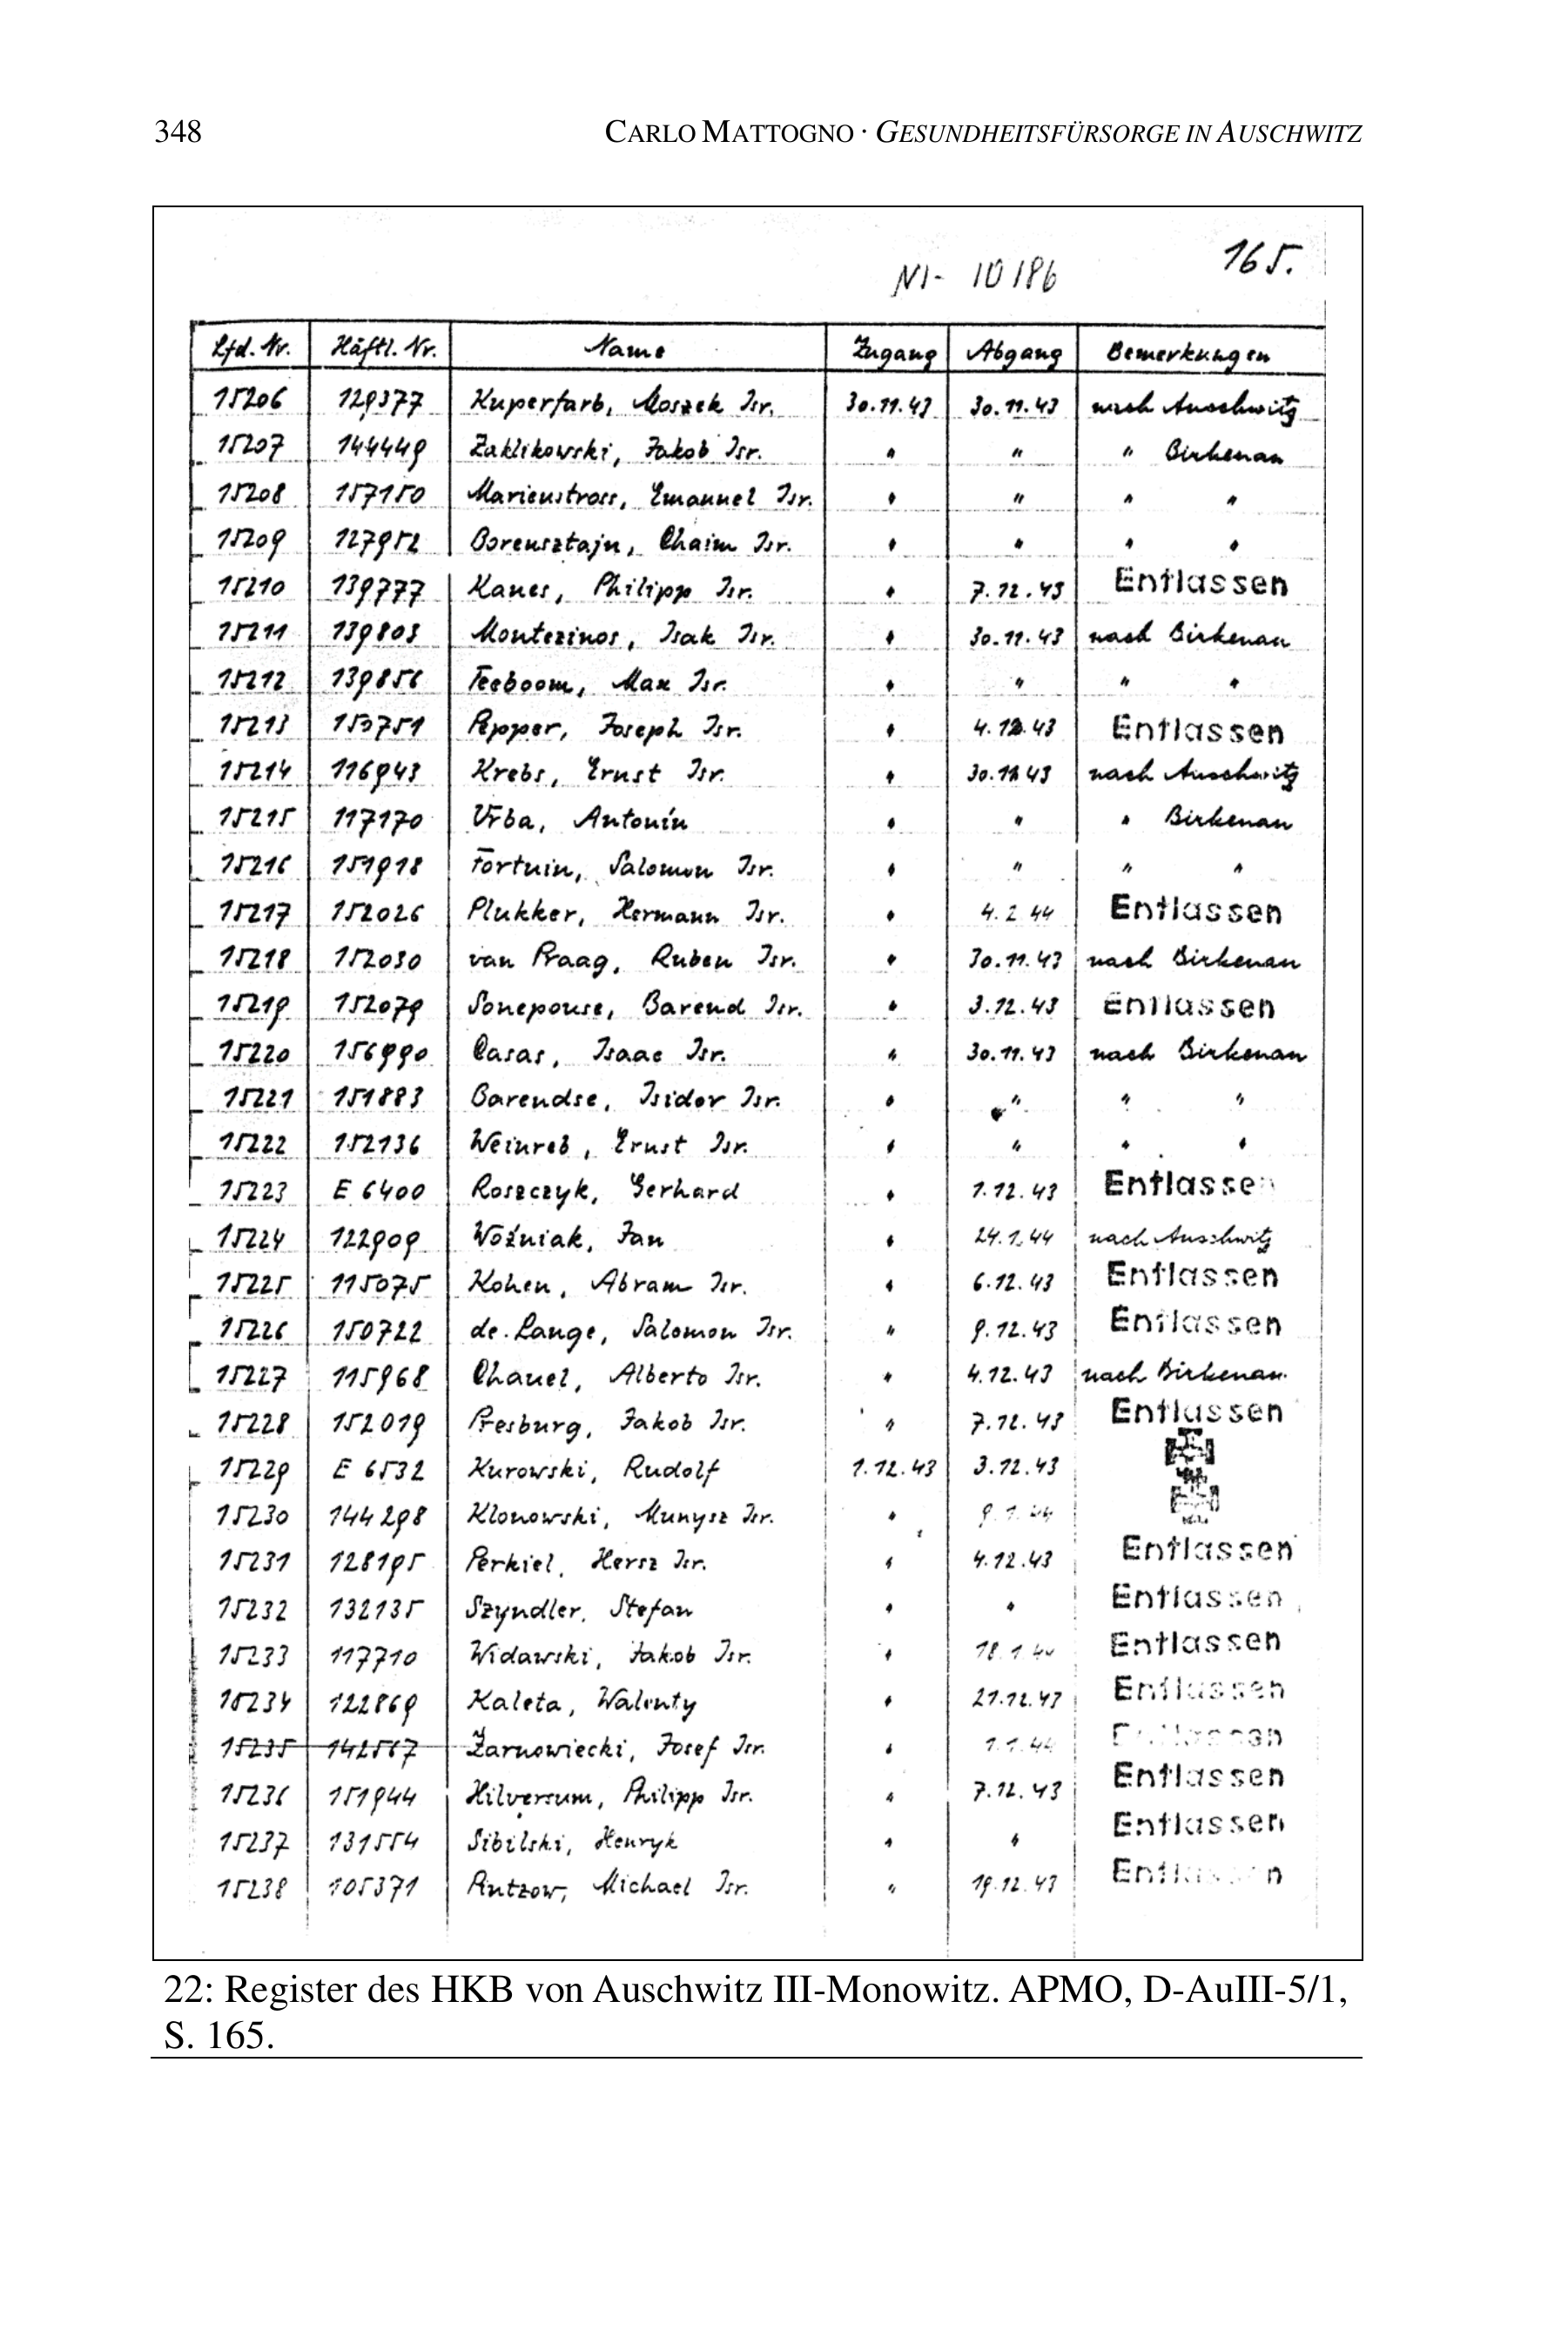 348 CARLO MATTOGNO · GESUNDHEITSFÜRSORGE IN AUSCHWITZ
165.
NI- 10186
Lfd. Nr. Häftl. Nr. Name Zugang Abgang Bemerkungen
15206 129377 Kuperfarb, Moszek Isr. 30.11.43 30.11.43 nach Auschwitz
15207 144449 Zaklikowski, Jakob Isr. " " " Birkenau
15208 157150 Marienstrass, Emanuel Isr. " " " "
15209 127952 Borensztajn, Chaim Isr. " " " "
15210 139777 Kanes, Philipp Isr. " 7.12.43 Entlassen
15211 139803 Montezinos, Isak Isr. " 30.11.43 nach Birkenau
15212 139856 Teeboom, Max Isr. " " " "
15213 153751 Pepper, Joseph Isr. " 4.12.43 Entlassen
15214 116943 Krebs, Ernst Isr. " 30.11.43 nach Auschwitz
15215 117170 Vrba, Antonín " " " Birkenau
15216 151918 Fortuin, Salomon Isr. " " " "
15217 152026 Plukker, Hermann Isr. " 4.2.44 Entlassen
15218 152030 van Praag, Ruben Isr. " 30.11.43 nach Birkenau
15219 152079 Sonepouse, Barend Isr. " 3.12.43 Entlassen
15220 156990 Casas, Isaac Isr. " 30.11.43 nach Birkenau
15221 151883 Barendse, Isidor Isr. " " " "
15222 152136 Weinreb, Ernst Isr. " " " "
15223 E 6400 Roszczyk, Gerhard " 1.12.43 Entlassen
15224 122909 Woźniak, Jan " 24.1.44 nach Auschwitz
15225 115075 Kohen, Abram Isr. " 6.12.43 Entlassen
15226 150722 de Lange, Salomon Isr. " 9.12.43 Entlassen
15227 115968 Chanel, Alberto Isr. " 4.12.43 nach Birkenau
15228 152019 Presburg, Jakob Isr. " 7.12.43 Entlassen
15229 E 6532 Kurowski, Rudolf 1.12.43 3.12.43
15230 144298 Klonowski, Munysz Isr. " 9.1.44
15231 128195 Perkiel, Hersz Isr. " 4.12.43 Entlassen
15232 132135 Szyndler, Stefan " " Entlassen
15233 117710 Widawski, Jakob Isr. " 18.1.44 Entlassen
15234 122869 Kaleta, Walenty " 21.12.43 Entlassen
15235 142567 Żarnowiecki, Josef Isr. " 1.1.44 Entlassen
15236 151944 Hilversum, Philipp Isr. " 7.12.43 Entlassen
15237 131554 Sibilski, Henryk " " Entlassen
15238 105371 Rutzow, Michael Isr. " 19.12.43 Entlassen
22: Register des HKB von Auschwitz III-Monowitz. APMO, D-AuIII-5/1,
S. 165.